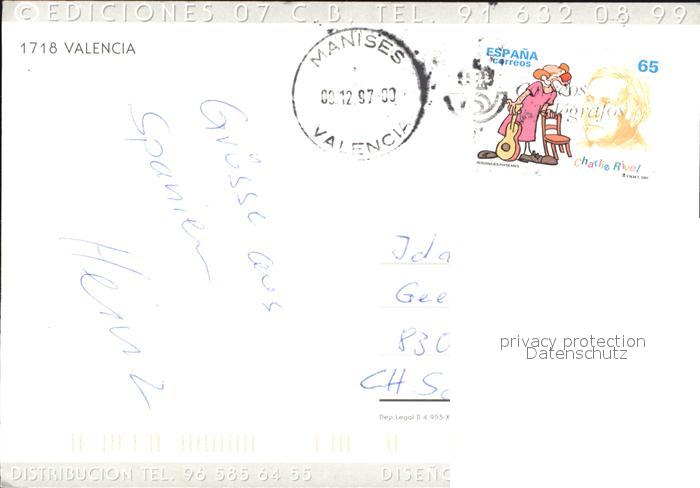 ©EDICIONES 07 C.B. TEL. 91 632 08 99
1718 VALENCIA
MANISES
09.12.97-00
VALENCIA
ESPAÑA
correos
65
Charlie Rivel
Grüsse aus
Spanien
Heinz
Ida
Gee
830
CH Sc
privacy protection
Datenschutz
Dep. Legal B 4.955-X
DISTRIBUCION TEL. 96 585 64 55
DISEÑO